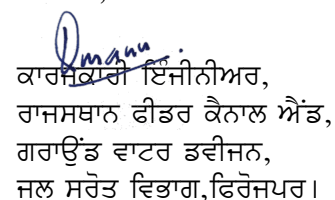 ਕਾਰਜਕਾਰੀ ਇੰਜੀਨੀਅਰ,
ਰਾਜਸਥਾਨ ਫੀਡਰ ਕੈਨਾਲ ਐਂਡ,
ਗਰਾਉਂਡ ਵਾਟਰ ਡਵੀਜਨ,
ਜਲ ਸਰੋਤ ਵਿਭਾਗ,ਫਿਰੋਜਪਰ।